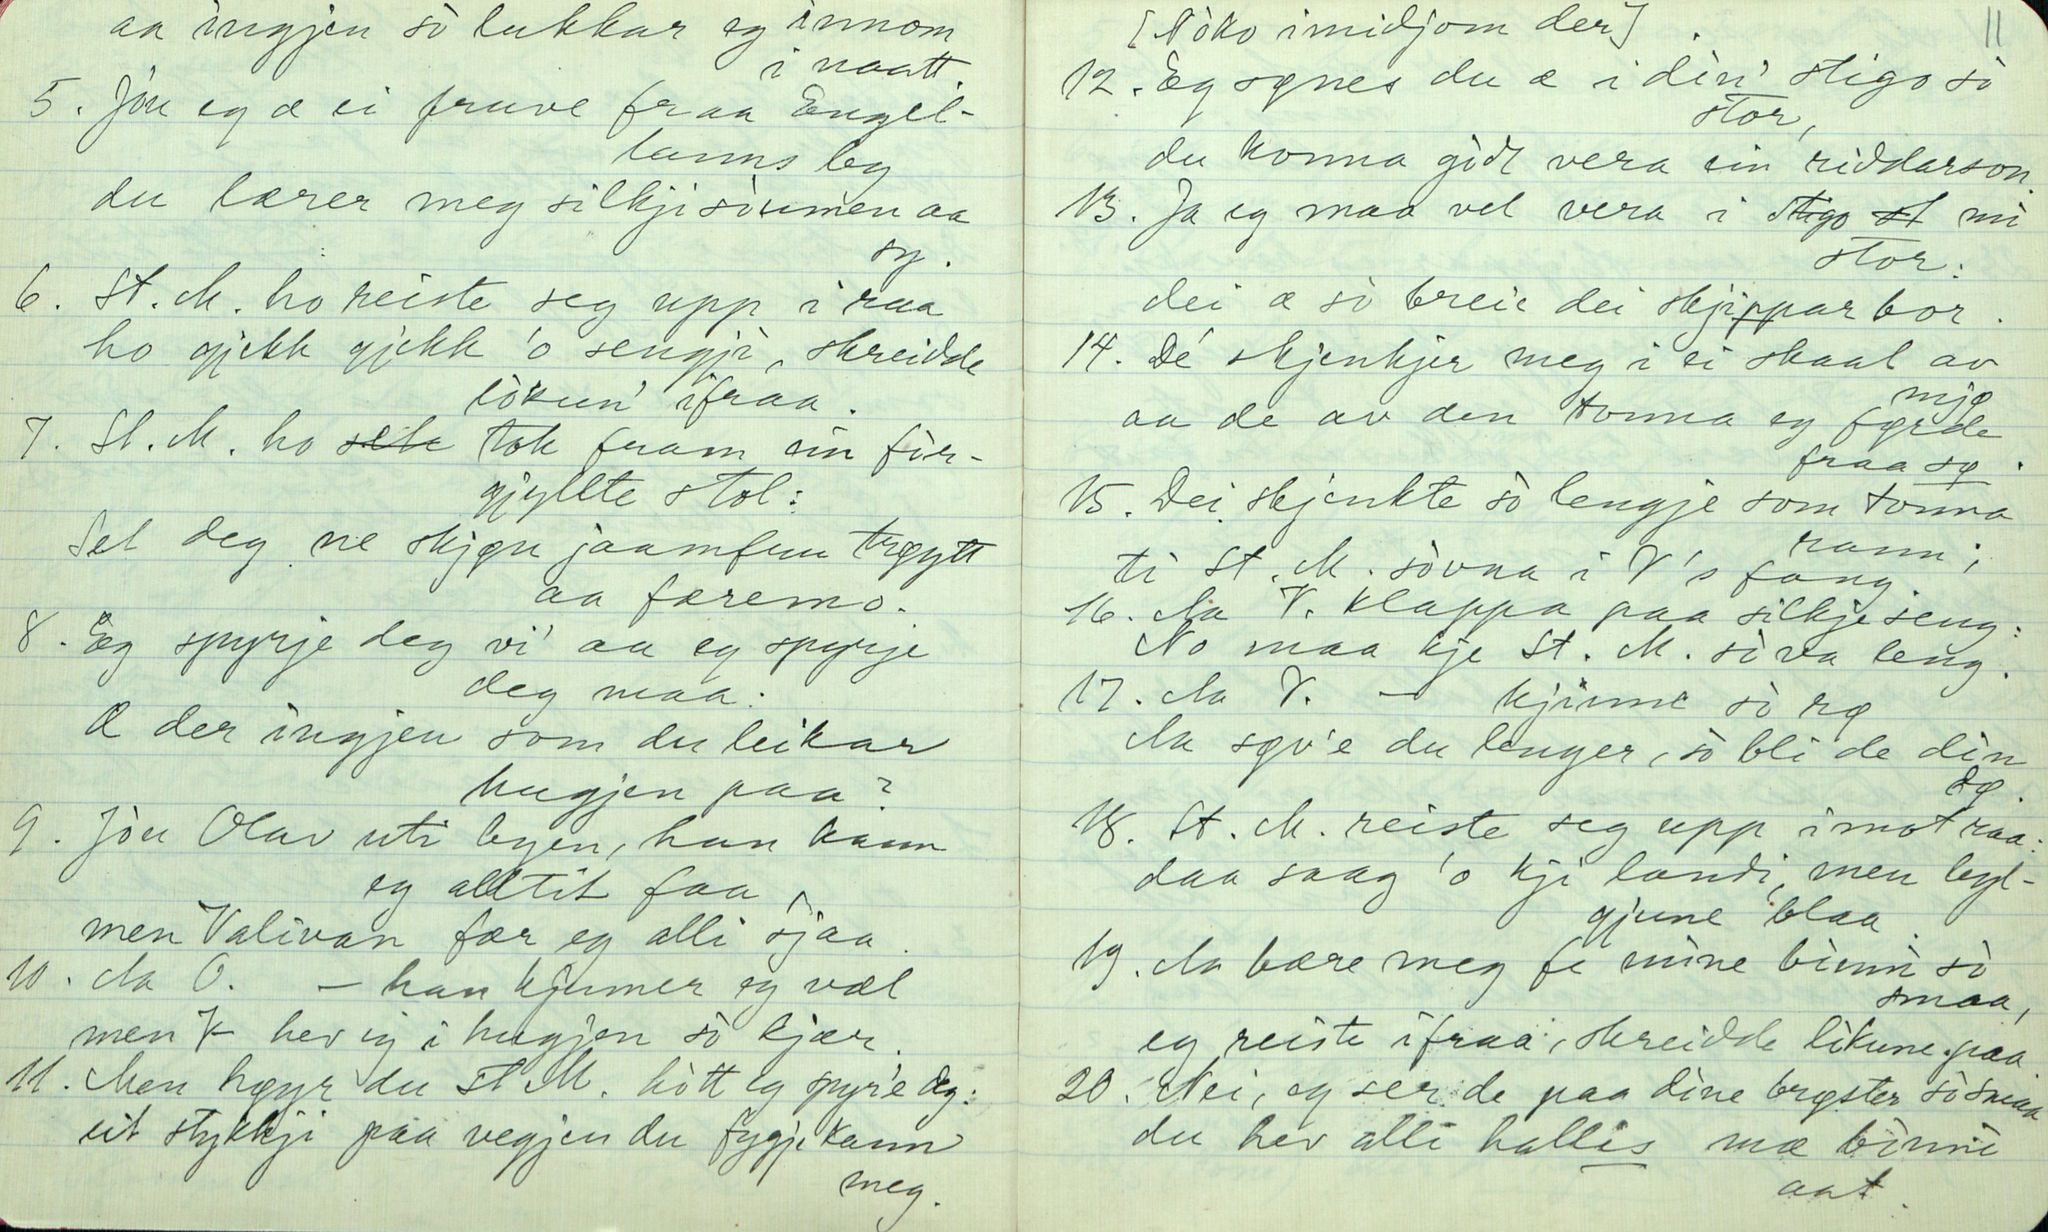 aa ingjen sò lukkar eg innom
i naatt.
5. Jòu eg æ ei fruve fraa Engel-
lanns by
du lærer meg silkjisòumen aa
sy.
6. St. M. ho reiste seg upp i raa
ho gjekk gjekk 'o sengji, skreidde
lòkun' ifraa.
7. St. M. ho tok fram sin fòr-
gjyllte stol:
Set deg ne skjøn jaamfru trøytt
aa færemo.
8. Eg spyrje deg vi' aa eg spyrje
deg maa:
Æ der ingjen som du leikar
hugjen paa?
9. Jòu Olav uti byen, han kann
eg alltit faa,
men Valivan fær eg alli sjaa.
10. Aa O. — han kjenner eg væl
men V— hev eg i hugjen sò kjær.
11. Men høyr du St M. hòtt eg spyr'e deg:
eit stykkji paa vegjen du fygje kann
meg.
[Nòko imidjom der]
11
12. Eg synes du æ i din' stigo sò
stor,
du konna gòdt vera ein riddarson.
13. Ja eg maa vel vera i stigo st mi
stor:
dei æ sò breie dei skjippar bor.
14. De' skjenkjer meg i ei skaal av
mjø
aa de av den tonna eg førde
fraa sø.
15. Dei skjenkte sò lengje som tonna
rann;
ti St. M. sòvna i V's fang
16. Aa V. klappa paa silkje seng:
No maa kje St. M. sòva leng.
17. Aa V. — kjinne sò rø
Aa søv'e du lenger, sò bli de din
dø.
18. St. M. reiste seg upp imot raa:
daa saag 'o kji landi, men byl-
gjune blaa.
19. Aa bære meg fe mine binni sò
smaa,
eg reiste ifraa, skreidde likune paa
20. Nei, eg ser de paa dine brøster sò smaa
du hev alli hallis mæ binni
aat.